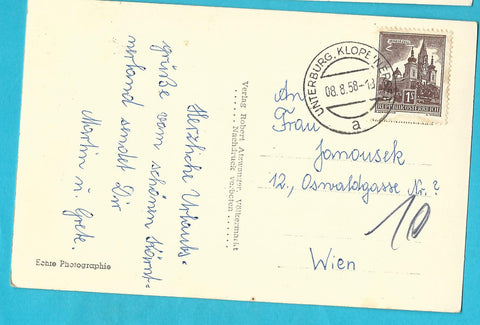 Herzliche Urlaubs-
grüße vom schönen Kärnt-
nerland sendet Dir
Martin u. Grete.
Echte Photographie
Verlag Robert Völkermarkt
Nachdruck verboten
UNTERBURG, KLOPEINERSEE
08.8.58-18
a
REPUBLIK ÖSTERREICH
An
Frau
Janousek
12., Oswaldgasse Nr.?
10
Wien